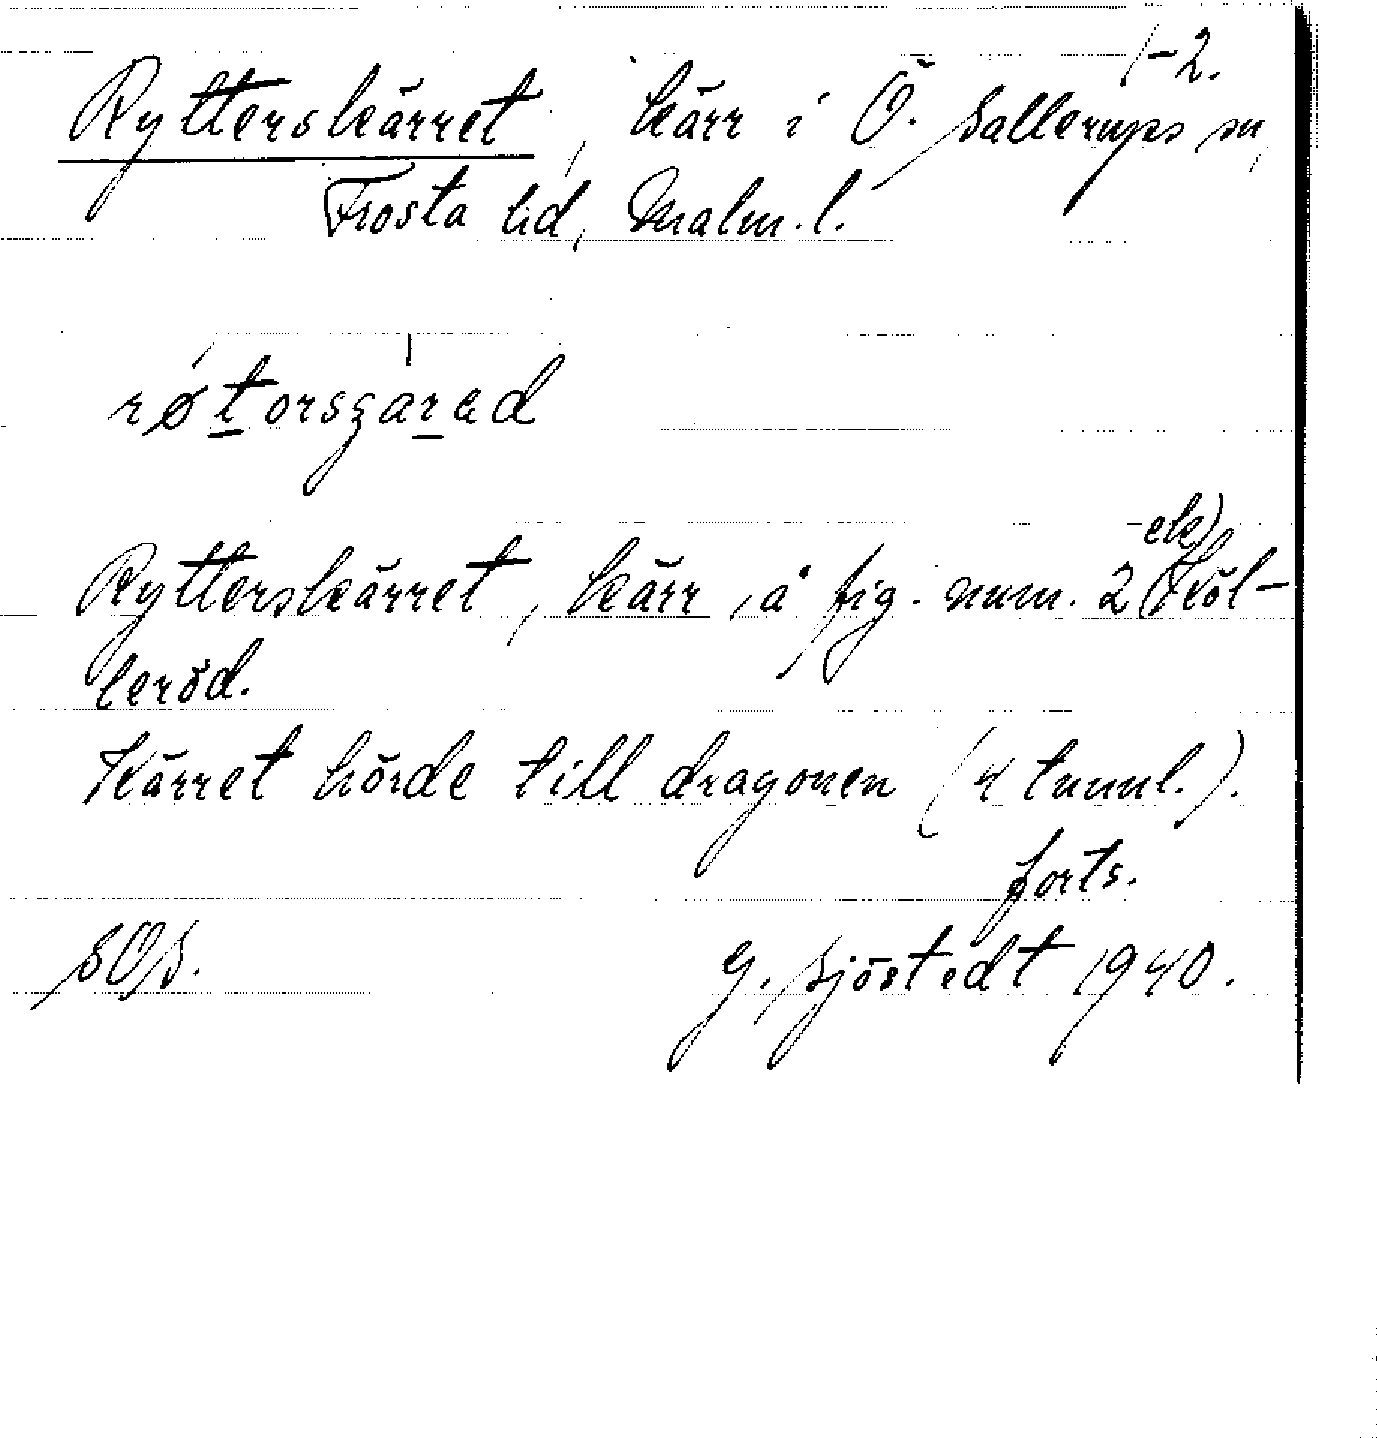 1-2.
Rytterskärret, kärr i Ö. Sallerups sn,
Frosta hd, Malm. l.
røtorsʒarad
-ek)
Rytterskärret, kärr, å fig. num. 2 (Köl-
leröd.
Kärret hörde till dragonen (4 tunnl.).
forts.
SOS. G. Sjöstedt 1940.